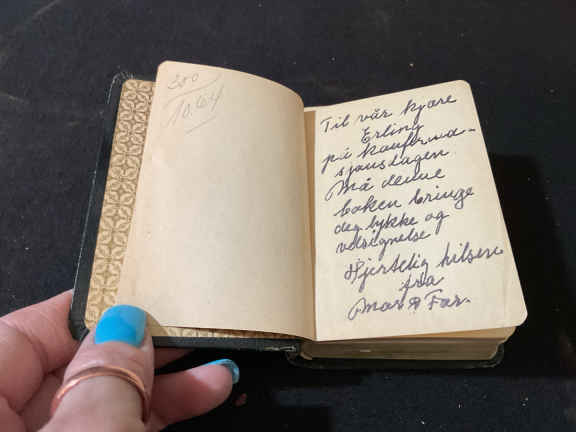 200
10.64
Til vår kjære
Erling
på konfirma-
sjonsdagen.
Må denne
boken bringe
deg lykke og
velsignelse
Hjertelig hilsen
fra
Mor & Far.